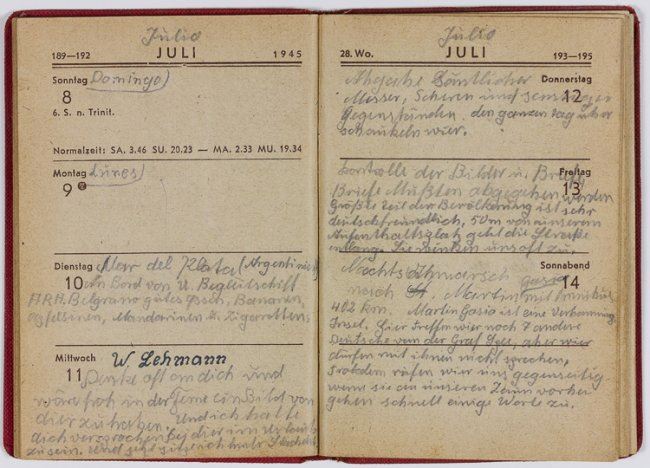 Julio
189—192 JULI 1945
Sonntag Domingo)
8
6. S. n. Trinit.
Normalzeit: SA. 3.46 SU. 20.23 — MA. 2.33 MU. 19.34
Montag Lunes)
9
Dienstag Mar del Plata (Argentinien)
10 An Bord von U. Begleitschiff
ARA. Belgrano gutes Essen, Bananen,
Apfelsinen, Mandarinen u. Zigaretten.
Mittwoch W. Lehmann
11 Denke oft an dich und
wäre froh in der Ferne ein Bild von
dir zu haben. Und ich hatte
dich versprochen bei dier im Urlaub
zu sein. Und jetzt sitze ich hinter
Julio
28. Wo. JULI 193—195
Abgabe Sämtlicher Donnerstag
Messer, Scheren und sonstiger 12
Gegenständen. den ganzen tag über
schaukeln wier.
Kontrolle der Bilder u. Briefe Freitag
Briefe Mußten abgegeben werden 13
Größte teil der Bevölkerung ist sehr
deutschfreundlich, 50m von unserem
Aufenthaltsplatz geht die Strecke
entlang. Sie winken uns oft zu.
Nachts Abmarsch Sonnabend
nach Martin Gasia mit 14
402 km. Martin Gasia ist eine Verbannung
Insel. Hier treffen wier noch 7 andere
Deutsche von der Graf Spee, aber wier
dürfen mit ihnen nicht sprechen,
trotzdem rufen wier uns gegenseitig
wenn sie an unseren Zaun vorbei
gehen schnell einige Worte zu.